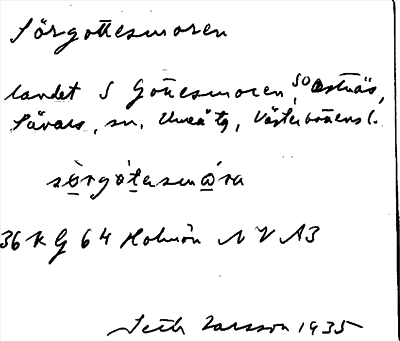 Sörgottesmoren
landet S Gottesmoren, SO Ostnäs,
Sävars sn, Umeå tg, Västerbottens l.
sörgòtasmòra
36 K G 64 Holmön N V A3
Seth Larsson 1935